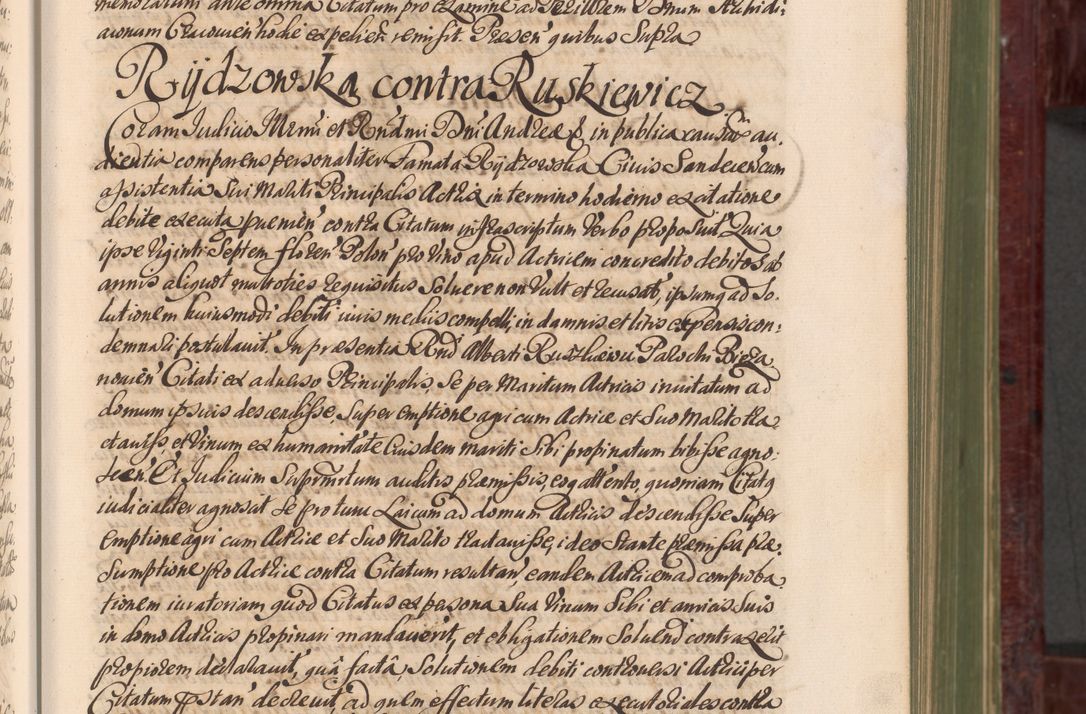 memoratum ante omnia Citatum pro examine ad Perillrem et Dnum Archidi:
aconum Cracovien hodie expedien remisit. Præsen quibus Supra
Rÿdzowska contra Ruskiewicz
Coram Iudicio Illrmi et Rndmi Dni Andreæ in publica causar au,
dientia comparens personaliter Famata Rÿdzowska Civis Sandecen cum
assistentia Sui Mariti Principalis Actrix in termino hodierno ex citatione
debite executa provenien contra Citatum infrascriptum Verbo proposuit. Quia
ipse Viginti Septem floren Polon pro Vino apud Actricem concredito debitos ab
annis aliquot multoties requisitus Soluere non Vult et recusat, ipsumq ad So.
lutionem huiusmodi debiti iuris mediis compelli, in damnis et litis expensis con:
demnari postulauit. In præsentia Rnd Alberti Ruszkiewicz Parochi
nouien Citati ex aduerso Principalis, Se per Maritum Actricis inuitatum ad
domum ipsius descendisse, Super emptione agri cum Actrice et Suo Marito tra
ctauisse, et Vinum ex humanitate Eiusdem mariti Sibi propinatum bibisse agno:
scen. Et Iudicium Suprmrtum auditis præmissis, eoq attento, quoniam Citatq
iudicialiter agnoscit Se pro tunc Laicum ad domum Actricis descendisse Super
emptione agri cum Actrice et Suo Marito tractauisse, ideo Stante præmissa præ,
Sumptione pro Actrice contra Citatum resultan, eandem Actricem ad comproba,
tionem iuratoriam quod Citatus ex persona Sua Vinum Sibi et amicis Suis
in domo Actricis propinari mandauerit, et obligationem Soluendi contraxerit
propiorem declarauit, qua factâ, Solutionem debiti controuersi Actrici per
Citatum præstan decreuit, ad quem effectum literas executoriales contra